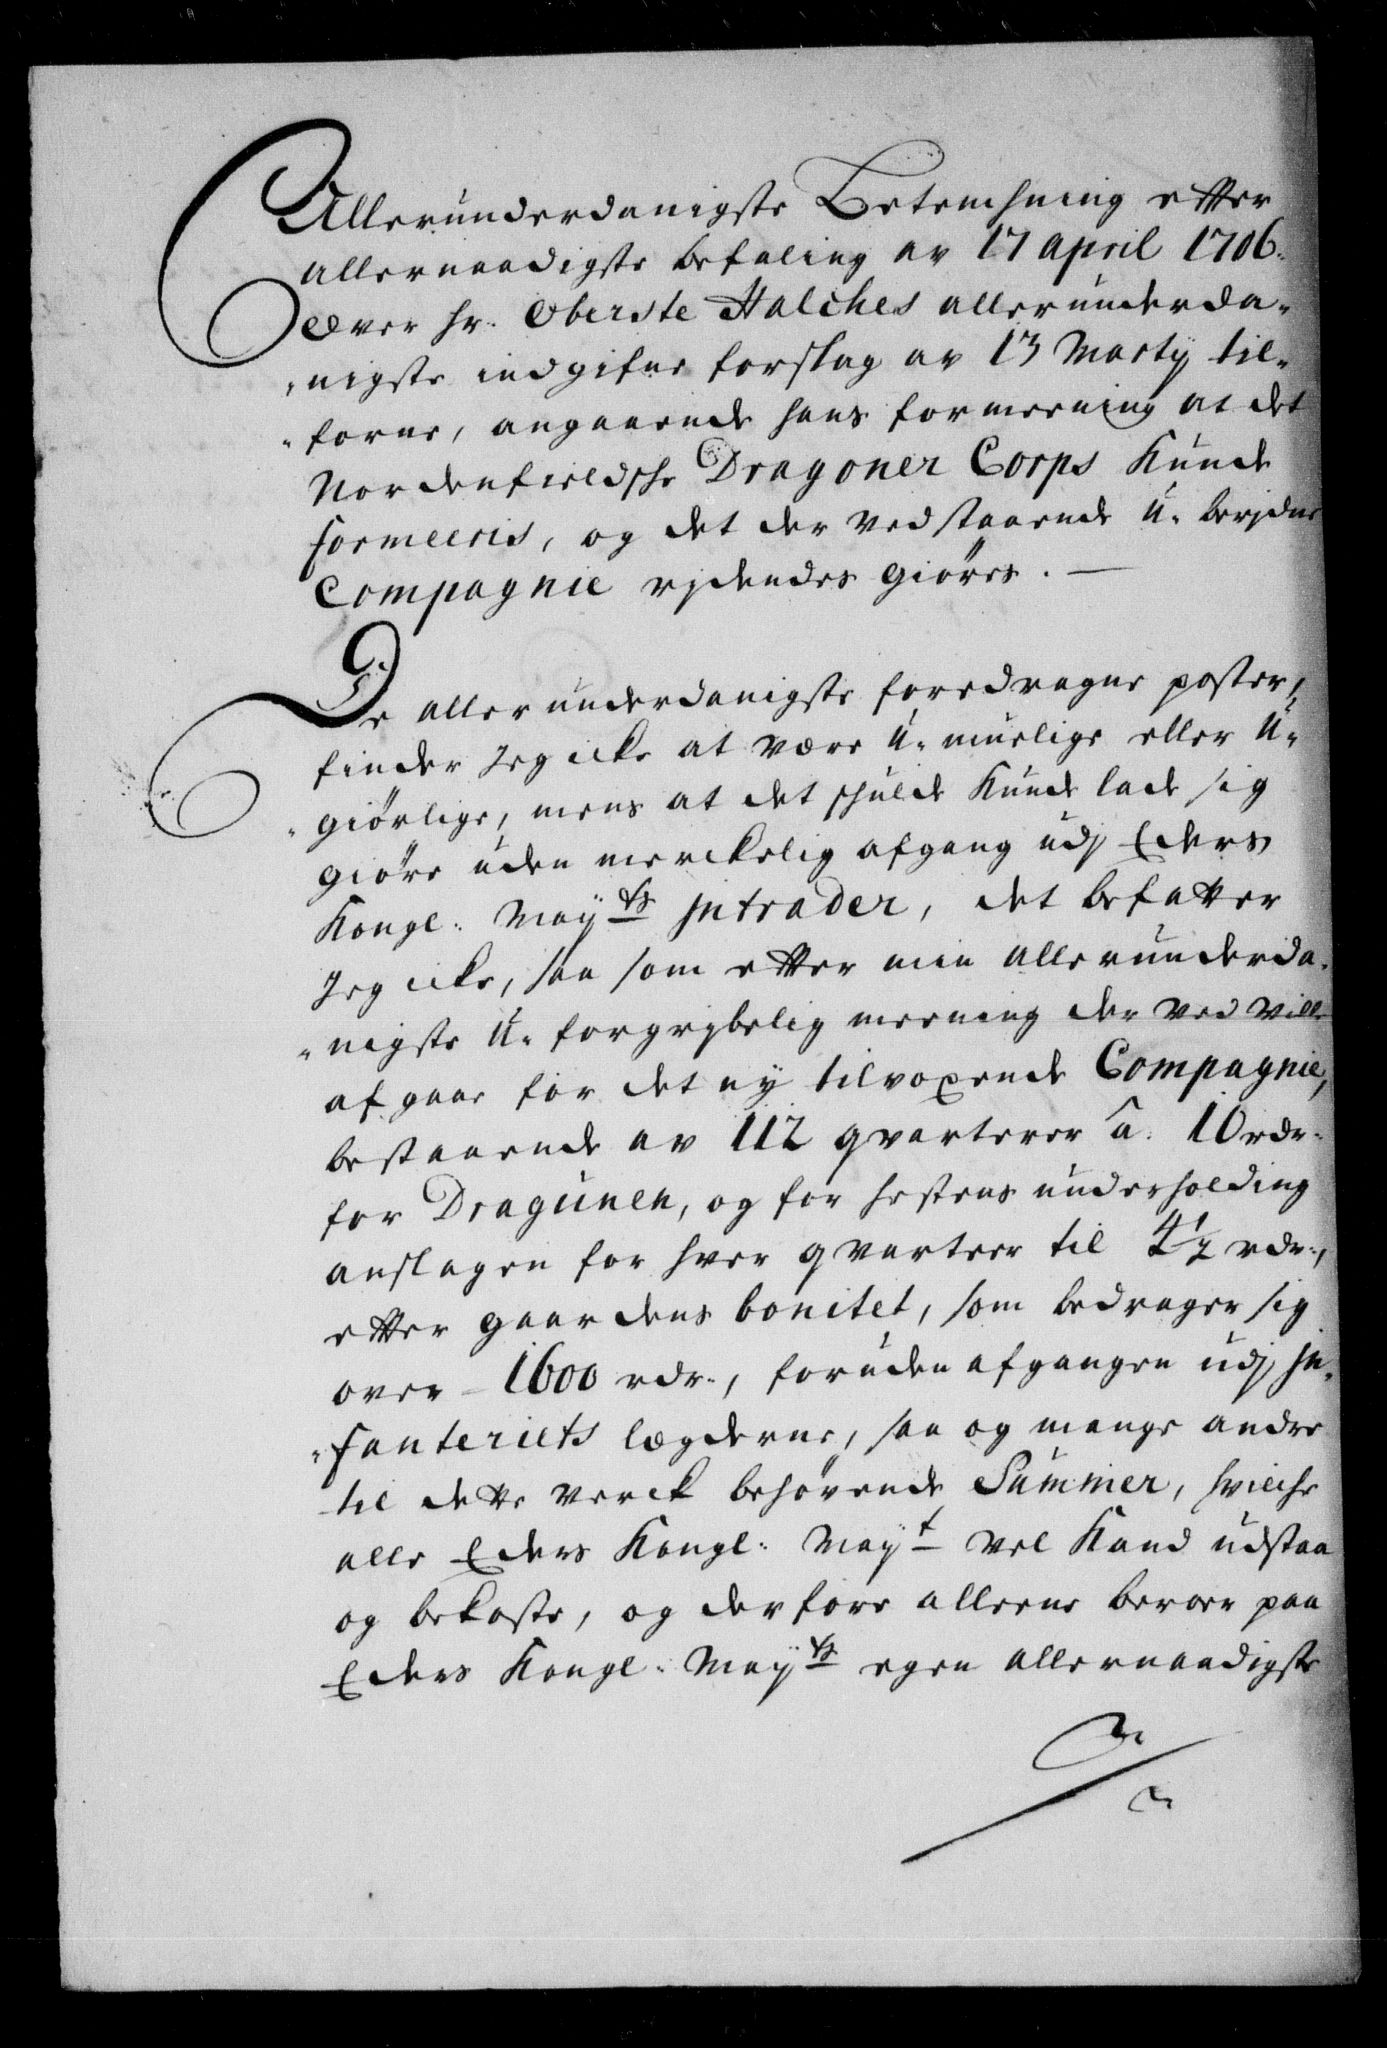 Allerunderdanigste Betenchning etter
allernaadigste befaling av 17 april 1706.
over hr. Oberste Halches allerunderda-
-nigste indgifne forslag av 13 Marty til-
-forne, angaaende hans formeening at det
Nordenfieldsche Dragoner Corps Kunde
formeeris, og det der ved staaende u-beridne
Compagnie rjdendes giöres. —
De allerunderdanigste foredragne poster,
finder Jeg icke at være U-muelige eller U-
-giörlige, mens at det schulde Kunde lade sig
giöre uden merckelig afgang udj Eders
Kongl: May:ts Jntrader, det befatter
Jeg icke, saa som etter min allerunderda-
-nigste U-forgrybelig meening der ved ville
afgaae for det ny tilvoxende Compagnie,
bestaaende av 112 qvarterer â 10 rdr.
for Dragunen, og for hestens underholding
anslagen for hver qvarteer til 4½ rdr.,
etter gaardens bonitet, som bedrager sig
over 1600 rdr., foruden afgangen udj Jn-
-fanteriets lægderne, saa og mange andre
til dette verck behövende Summer, hvilche
alle Eders Kongl: May:t vel Kand udstaa
og bekoste, og derfore alleene beroer paa
Eders Kongl: May:ts egen allernaadigste